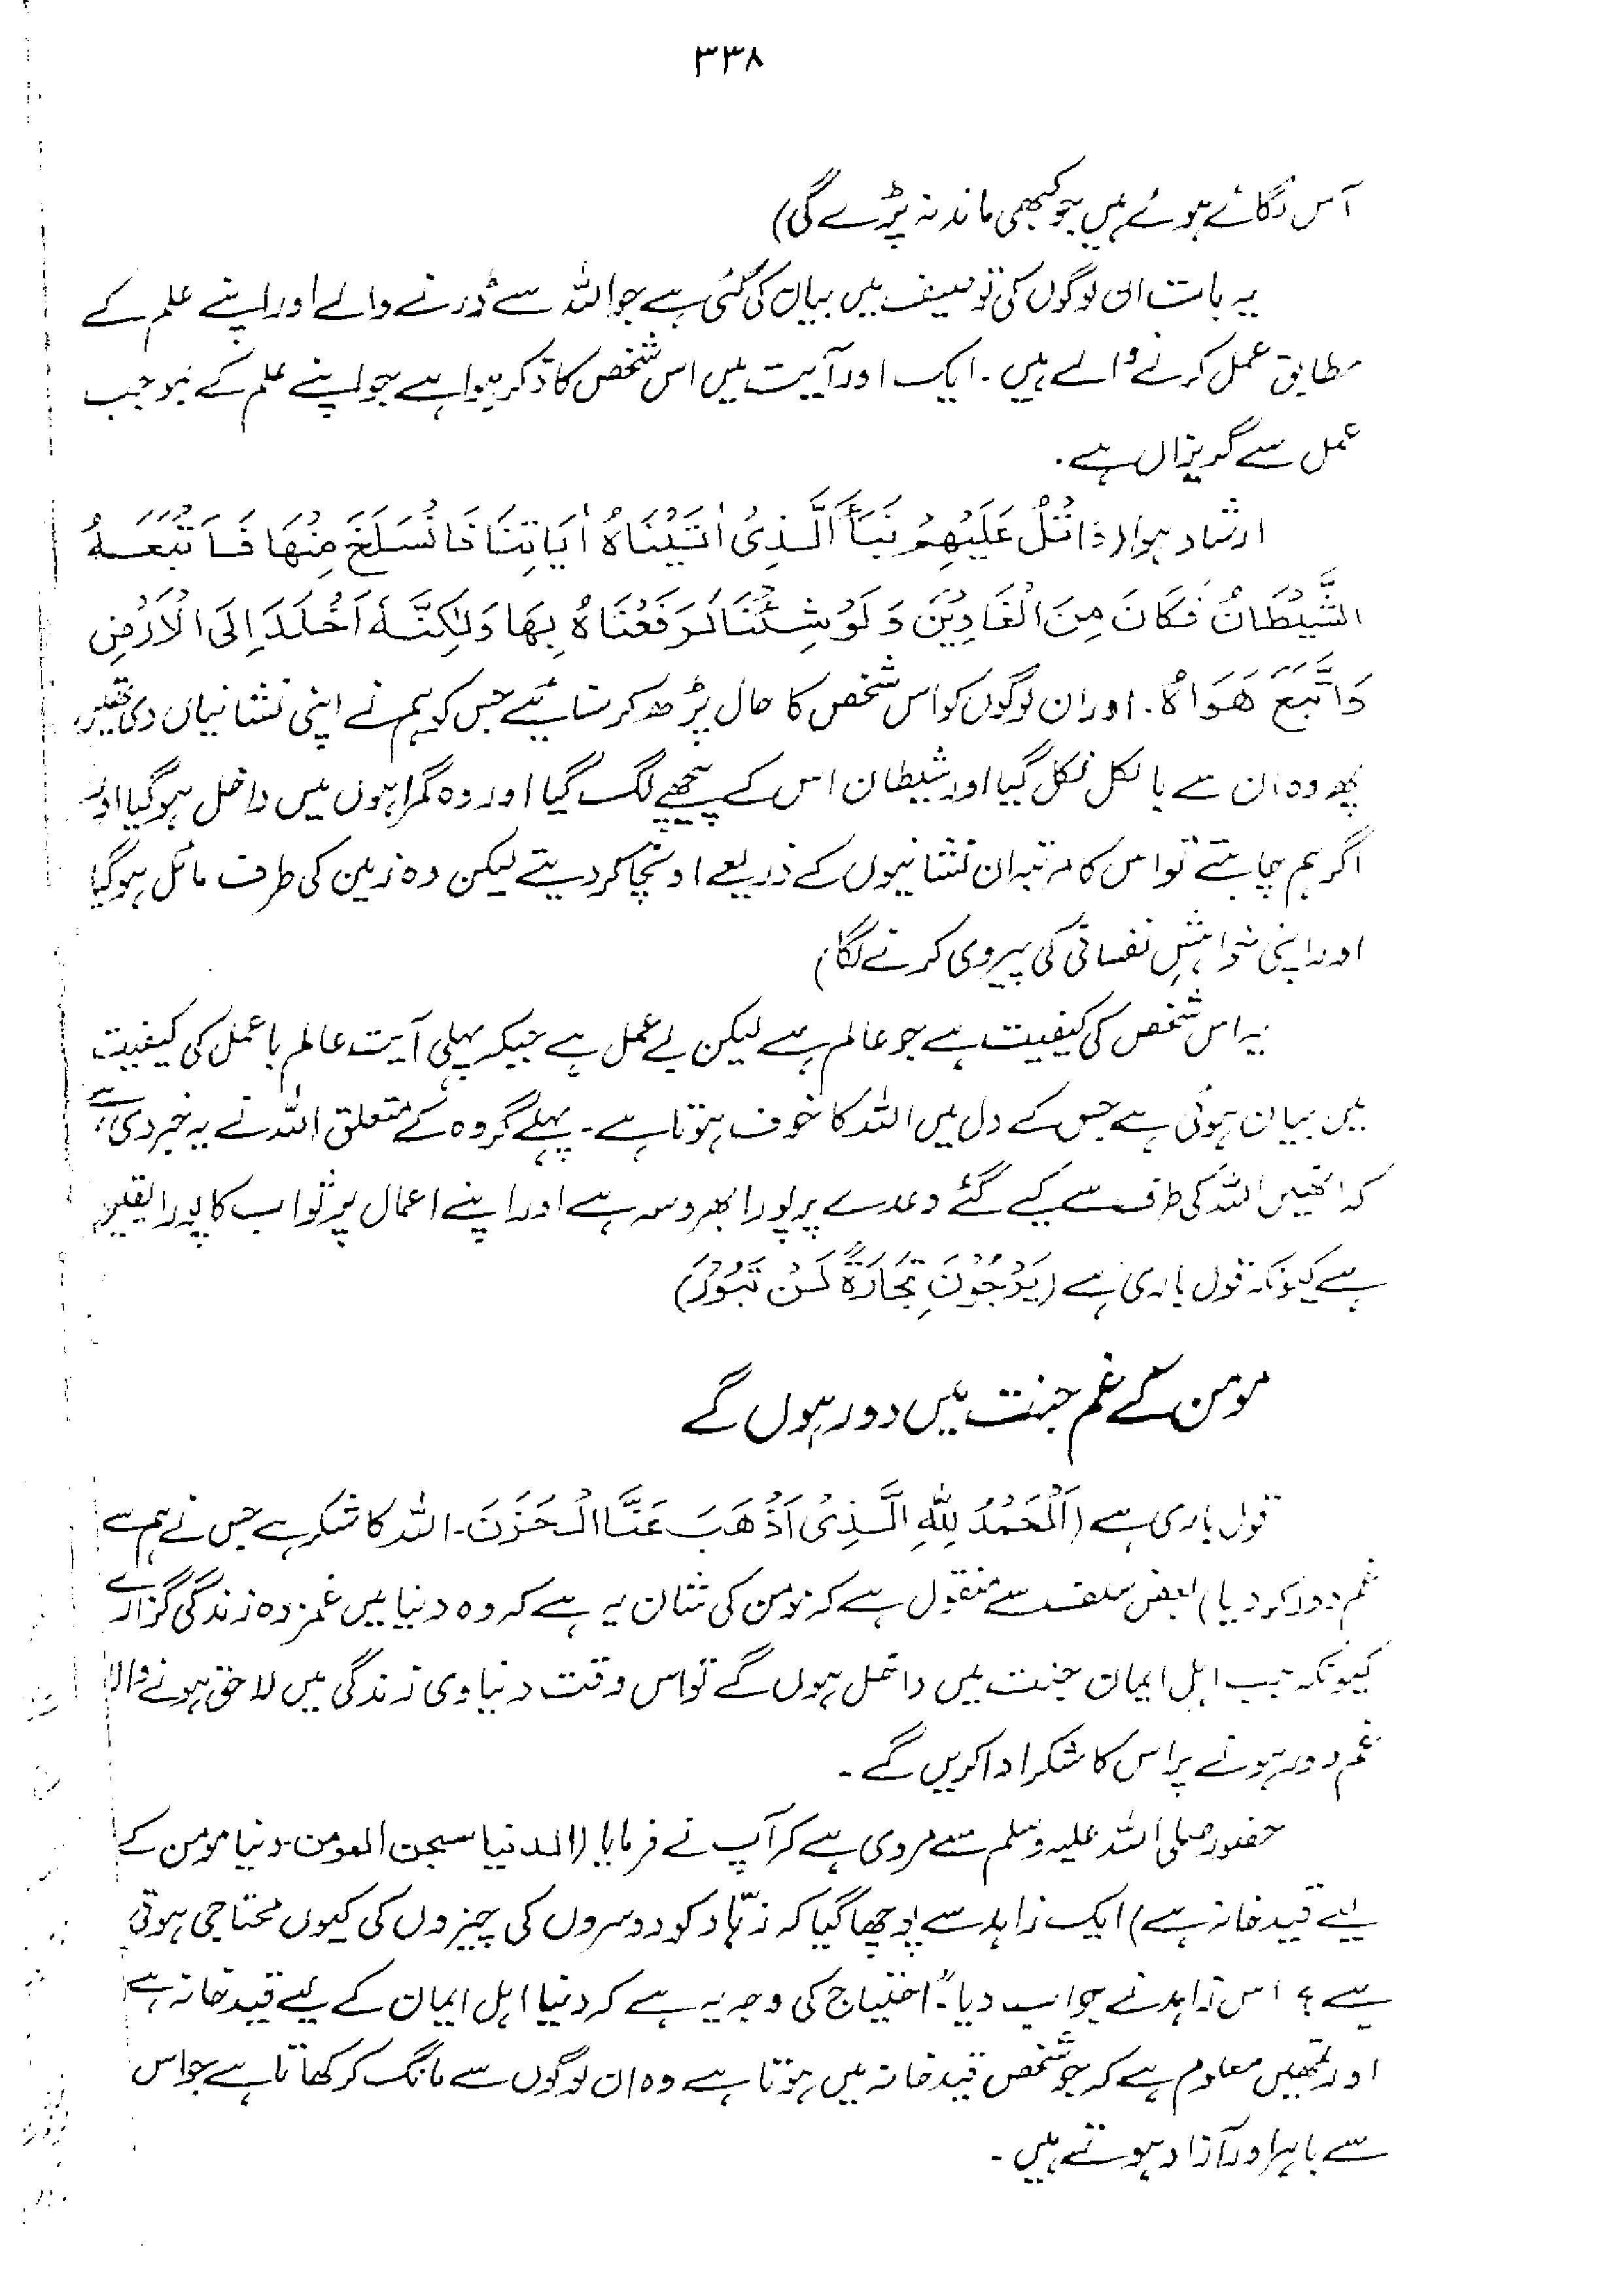 ۳۳۸
آس لگائے ہوئے ہیں جو کبھی ماند نہ پڑے گی)
یہ بات ان لوگوں کی توصیف میں بیان کی گئی ہے جو اللہ سے ڈرنے والے اور اپنے علم کے
مطابق عمل کرنے والے ہیں۔ ایک اور آیت میں اس شخص کا ذکر ہوا ہے جو اپنے علم کے بموجب
عمل سے گریزاں ہے۔
ارشاد ہوا (وَاتْلُ عَلَيْهِمْ نَبَأَ الَّذِیْ اٰتَيْنَاهُ اٰيَاتِنَا فَانْسَلَخَ مِنْهَا فَاَتْبَعَهُ
الشَّيْطَانُ فَكَانَ مِنَ الْغَاوِيْنَ وَلَوْ شِئْنَا لَرَفَعْنَاهُ بِهَا وَلٰكِنَّهٗ اَخْلَدَ اِلَى الْاَرْضِ
وَاتَّبَعَ هَوَاهُ۔ اور ان لوگوں کو اس شخص کا حال پڑھ کر سنائیے جس کو ہم نے اپنی نشانیاں دی تھیں،
پھر وہ ان سے بالکل نکل گیا اور شیطان اس کے پیچھے لگ گیا اور وہ گمراہوں میں داخل ہو گیا اور
اگر ہم چاہتے تو اس کا مرتبہ ان نشانیوں کے ذریعے اونچا کر دیتے لیکن وہ زمین کی طرف مائل ہو گیا
اور اپنی خواہشِ نفسانی کی پیروی کرنے لگا)
یہ اس شخص کی کیفیت ہے جو عالم ہے لیکن بے عمل ہے جبکہ پہلی آیت عالم باعمل کی کیفیت
میں بیان ہوئی ہے جس کے دل میں اللہ کا خوف ہوتا ہے۔ پہلے گروہ کے متعلق اللہ نے یہ خبر دی ہے
کہ انھیں اللہ کی طرف سے کیے گئے وعدے پر پورا بھروسہ ہے اور اپنے اعمال پر ثواب کا پورا یقین
ہے کیونکہ قول باری ہے (يَرْجُوْنَ تِجَارَةً لَنْ تَبُوْرَ)
مومن کے غم جنت میں دور ہوں گے
قول باری ہے (اَلْحَمْدُ لِلّٰهِ الَّذِیْ اَذْهَبَ عَنَّا الْحَزَنَ۔ اللہ کا شکر ہے جس نے ہم سے
غم دور کر دیا) بعض سلف سے منقول ہے کہ مومن کی شان یہ ہے کہ وہ دنیا میں غمزدہ زندگی گزارے
کیونکہ جب اہل ایمان جنت میں داخل ہوں گے تو اس وقت دنیاوی زندگی میں لاحق ہونے والا
غم دور ہونے پر اس کا شکر ادا کریں گے۔
حضور صلی اللہ علیہ وسلم سے مروی ہے کہ آپ نے فرمایا (الدنیا سجن المومن۔ دنیا مومن کے
لیے قید خانہ ہے) ایک زاہد سے پوچھا گیا کہ زہّاد کو دوسروں کی چیزوں کی کیوں محتاجی ہوتی
ہے؟ اس زاہد نے جواب دیا۔ "احتیاج کی وجہ یہ ہے کہ دنیا اہل ایمان کے لیے قید خانہ ہے
اور تمھیں معلوم ہے کہ جو شخص قید خانہ میں ہوتا ہے وہ ان لوگوں سے مانگ کر کھاتا ہے جو اس
سے باہر اور آزاد ہوتے ہیں۔